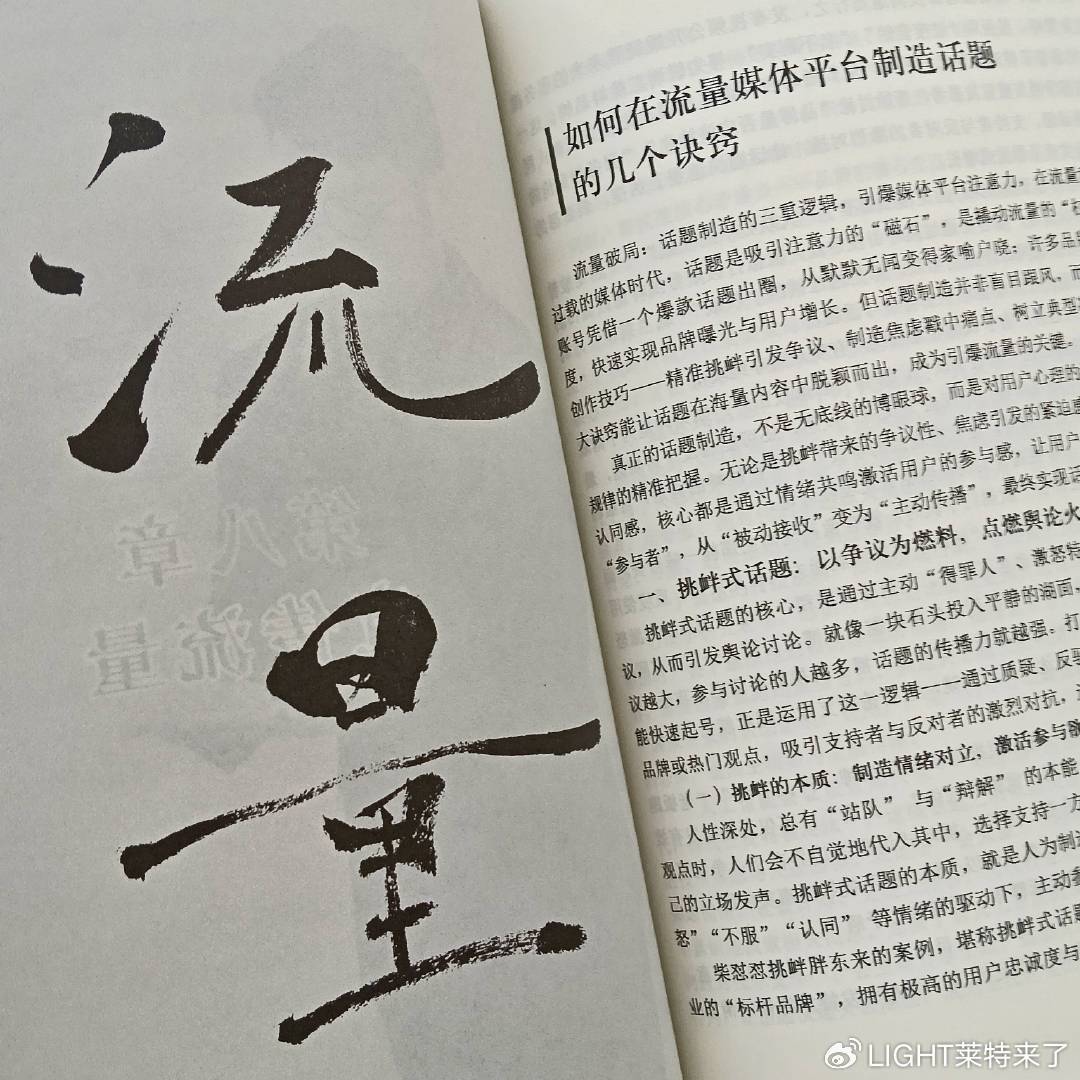 流量
如何在流量媒体平台制造话题
的几个诀窍
流量破局：话题制造的三重逻辑，引爆媒体平台注意力，在流量
过载的媒体时代，话题是吸引注意力的“磁石”，是撬动流量的“杠
账号凭借一个爆款话题出圈，从默默无闻变得家喻户晓；许多品牌
度，快速实现品牌曝光与用户增长。但话题制造并非盲目跟风，而
创作技巧——精准挑衅引发争议、制造焦虑戳中痛点、树立典型
大诀窍能让话题在海量内容中脱颖而出，成为引爆流量的关键。
真正的话题制造，不是无底线的博眼球，而是对用户心理的
规律的精准把握。无论是挑衅带来的争议性、焦虑引发的紧迫感
认同感，核心都是通过情绪共鸣激活用户的参与感，让用户
“参与者”，从“被动接收”变为“主动传播”，最终实现话
一、挑衅式话题：以争议为燃料，点燃舆论火
挑衅式话题的核心，是通过主动“得罪人”、激怒特
议，从而引发舆论讨论。就像一块石头投入平静的湖面，
议越大，参与讨论的人越多，话题的传播力就越强。打
能快速起号，正是运用了这一逻辑——通过质疑、反驳
品牌或热门观点，吸引支持者与反对者的激烈对抗，
（一）挑衅的本质：制造情绪对立，激活参与欲
人性深处，总有“站队” 与“辩解” 的本能
观点时，人们会不自觉地代入其中，选择支持一方
己的立场发声。挑衅式话题的本质，就是人为制造
怒”“不服”“认同” 等情绪的驱动下，主动参
柴怼怼挑衅胖东来的案例，堪称挑衅式话题
业的“标杆品牌”，拥有极高的用户忠诚度与
第八章
流量
LIGHT莱特来了